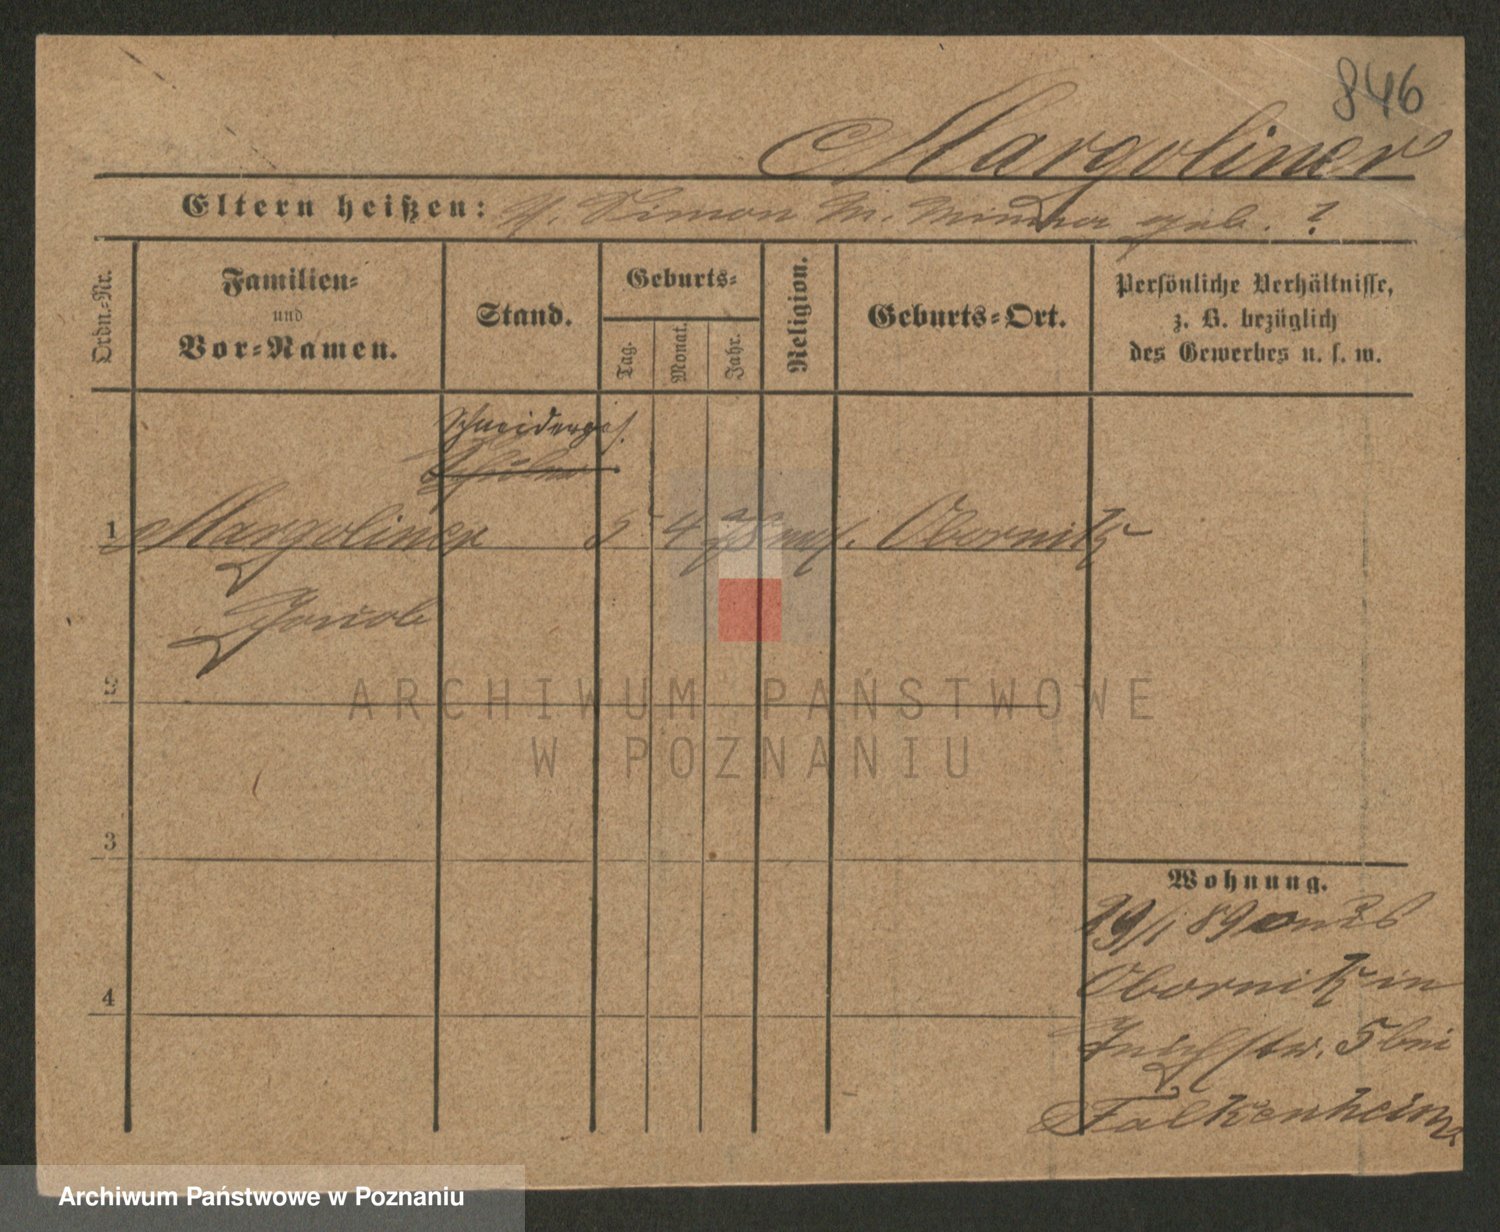 846
Margoliner
Eltern heißen: V. Simon M. Minna geb. ?
Ordn.-Nr.
Familien-
und
Vor-Namen.
Stand.
Geburts-
Tag.
Monat.
Jahr.
Religion.
Geburts-Ort.
Persönliche Verhältnisse,
z. B. bezüglich
des Gewerbes u. s. w.
Schneiderges.
1 Margoliner 5 4 73 mos. Obornik
Jacob
2
ARCHIWUM PAŃSTWOWE
W POZNANIU
3
Wohnung.
29/1 89 an 26
4
Obornik in
5 bei
Falkenheim
Archiwum Państwowe w Poznaniu